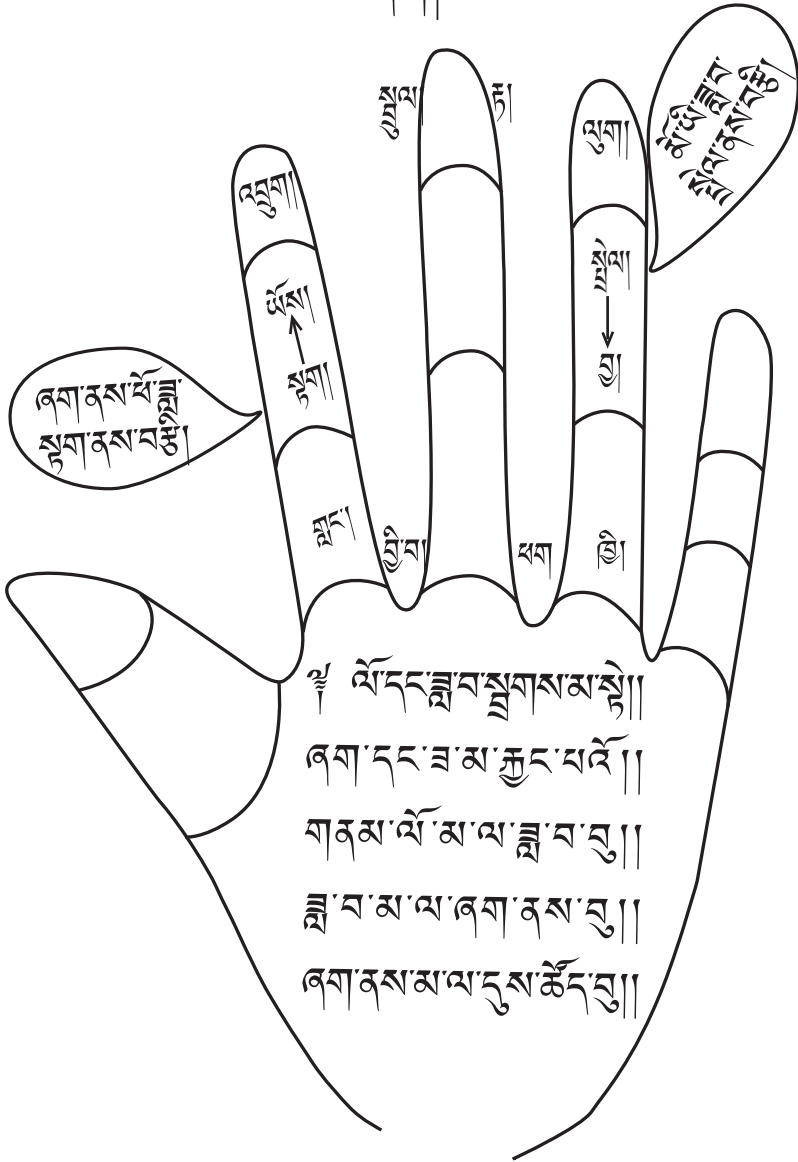 སྦྲུལ།
རྟ།
ལུག།
འབྲུག།
སྤྲེལ།
ཡོས།
བྱ།
སྟག།
ཞག་ནས་ཕོ་ཟླ་
སྟག་ནས་བརྩི།
གླང་།
བྱི་བ།
ཕག
ཁྱི།
༈ ལོ་དང་ཟླ་བ་སྦྲགས་མ་སྟེ།།
ཞག་དང་ཟ་མ་རྐྱང་པའོ།།
གནམ་ལོ་མ་ལ་ཟླ་བ་བུ།།
ཟླ་བ་མ་ལ་ཞག་ནས་བུ།།
ཞག་ནས་མ་ལ་དུས་ཚོད་བུ།།